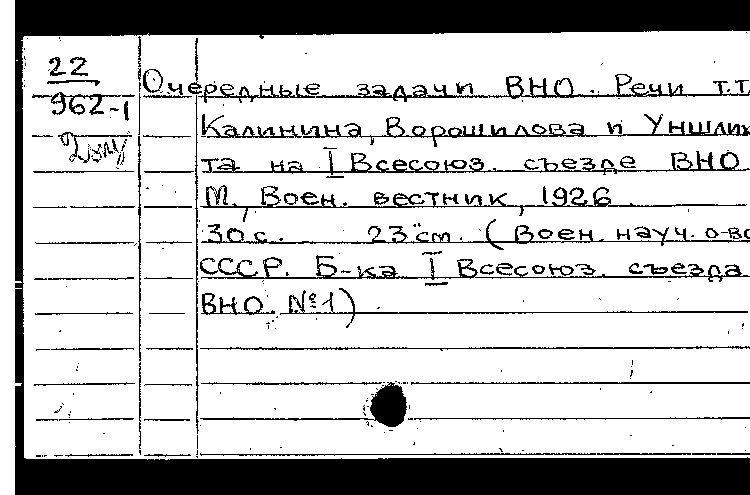 22
962-1
2 экз
Очередные задачи ВНО. Речи т.т.
Калинина, Ворошилова и Уншлих
та на I Всесоюз. съезде ВНО
М., Воен. вестник, 1926
30 с. 23 см. (Воен. науч. о-во
СССР. Б-ка I Всесоюз. съезда
ВНО. №1)